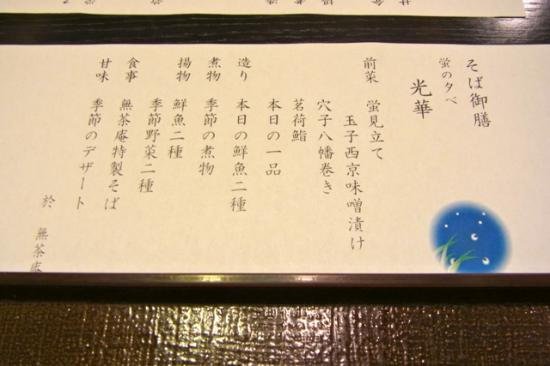 そば御膳
蛍の夕べ
光華
前菜 蛍見立て
玉子西京味噌漬け
穴子八幡巻き
茗荷鮨
本日の一品
造り 本日の鮮魚二種
煮物 季節の煮物
揚物 鮮魚二種
季節野菜二種
食事 無茶庵特製そば
甘味 季節のデザート
於 無茶庵